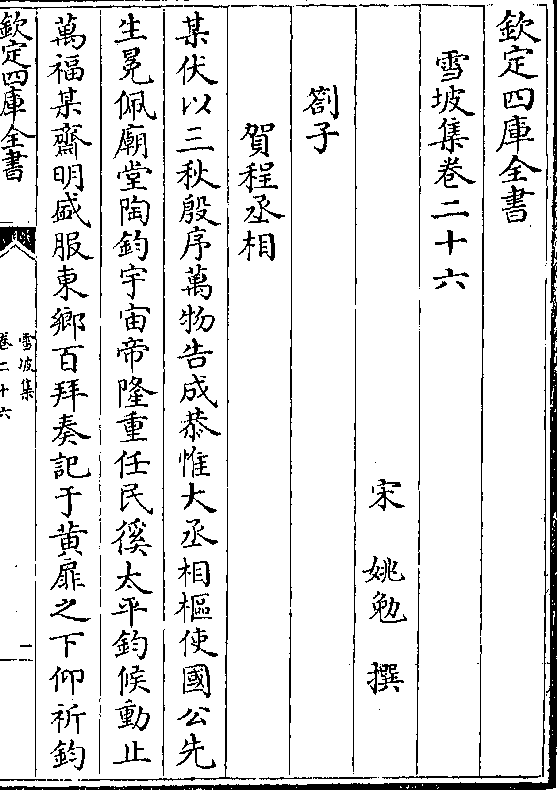 欽定四庫全書
雪坡集卷二十六
宋　姚勉　撰
劄子
賀程丞相
某伏以三秋殷序萬物告成恭惟大丞相樞使國公先
生冕佩廟堂陶鈞宇宙帝隆重任民徯太平鈞候動止
萬福某齋明盛服東鄉百拜奏記于黃扉之下仰祈鈞
欽定四庫全書
雪坡集
卷二十六
一